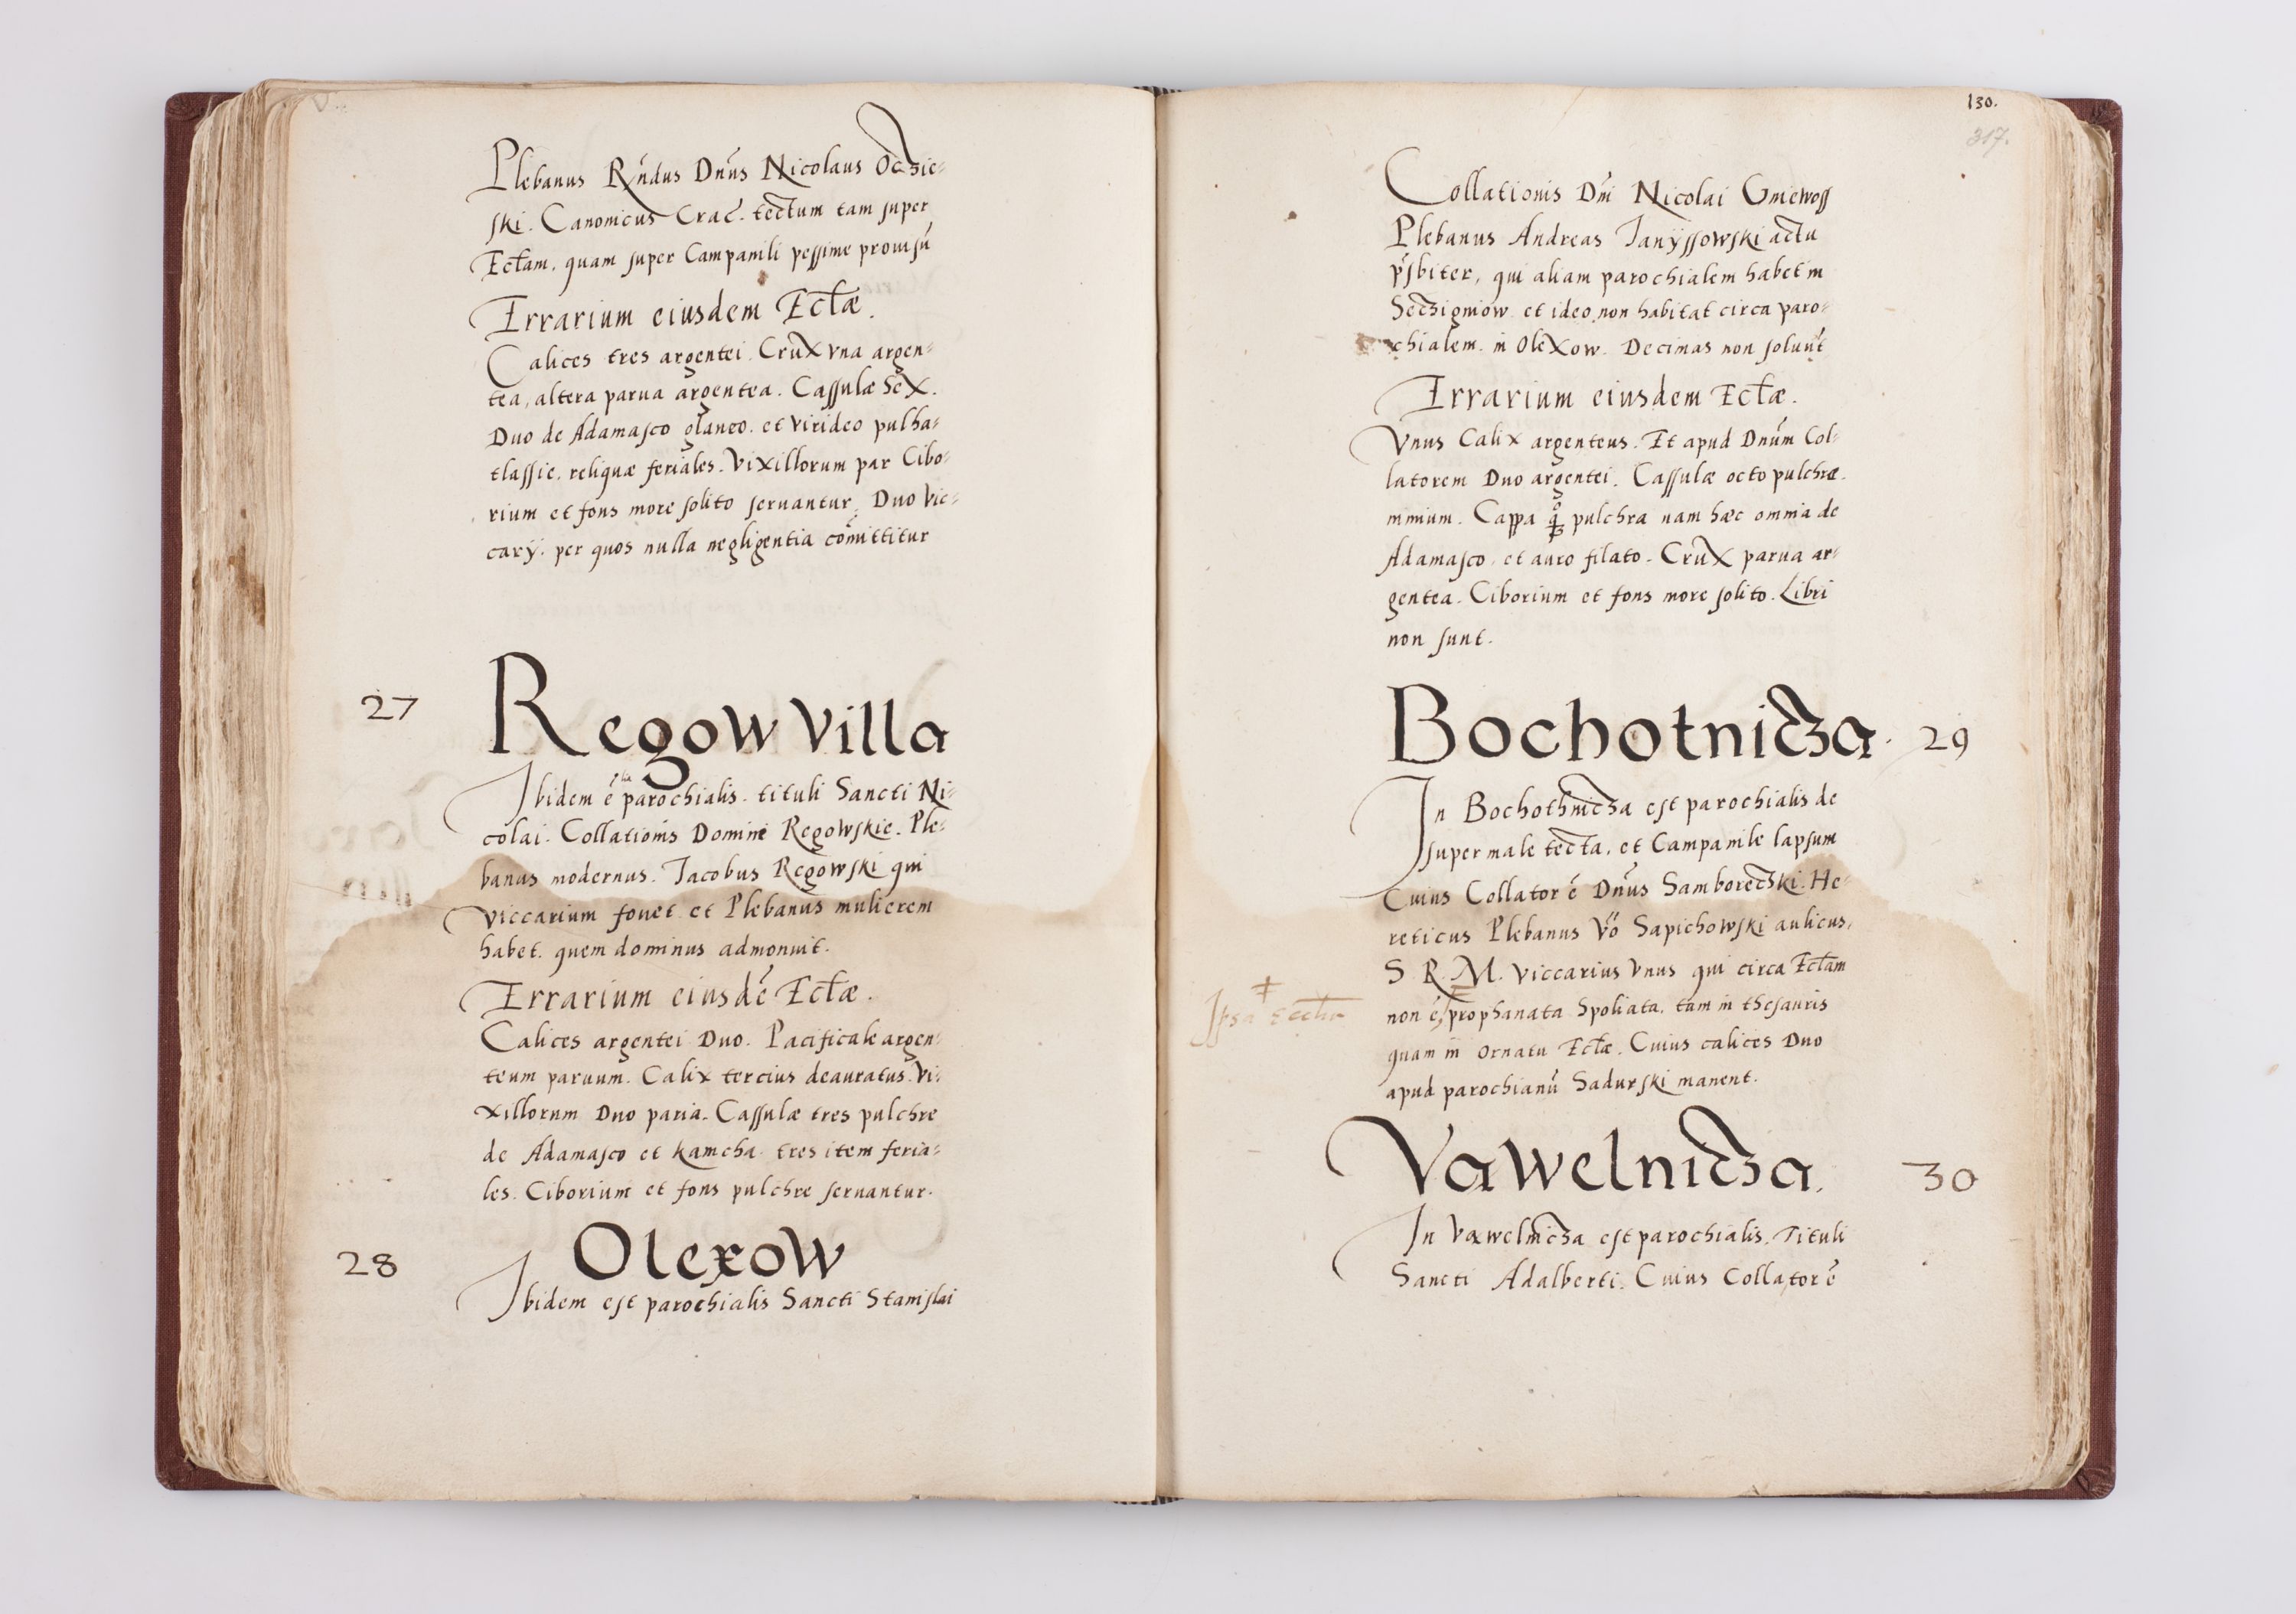 Plebanus Rn̄dus Dn̄us Nicolaus Oczie-
ski. Canonicus Crac̄. tectum tam super
Eccl̄am, quam super Campanili pessime prouisū
Errarium eiusdem Eccl̄æ.
Calices tres argentei. Crux vna argen-
tea, altera parua argentea. Cassulæ Sex.
Duo de Adamasco glauco. et virideo pulha-
tlassie. reliquæ feriales. Vixillorum par Cibo-
rium et fons more solito seruantur. Duo Vic-
carÿ. per quos nulla negligentia com̄ittitur
27
Regow Villa
Ibidem ē parochialis. tituli Sancti Ni-
colai. Collationis Domine Regowskie. Ple-
banus modernus. Jacobus Regowski qui
viccarium fouet et Plebanus mulierem
habet. quem dominus admonuit.
Errarium eiusdē Eccl̄æ.
Calices argentei Duo. Pacificale argen-
teum paruum. Calix tercius deauratus. Vi-
xillorum Duo paria. Cassulæ tres pulchre
de Adamasco et kamcha. tres item feria-
les. Ciborium et fons pulchre seruantur.
28
Olexow
Ibidem est parochialis Sancti Stanislai
130.
317.
Collationis Dn̄i Nicolai Gniewoss
Plebanus Andreas Janÿssowski actu
p̄sbiter, qui aliam parochialem habet in
Seczigniow et ideo non habitat circa paro-
chialem in Olexow. Decimas non soluūt
Errarium eiusdem Eccl̄æ.
Vnus Calix argenteus. Et apud Dnūm Col-
latorem Duo argentei. Cassulæ octo pulchræ
nimium. Cappa pulchra nam hæc omnia de
Adamasco, et auro filato. Crux parua ar-
gentea. Ciborium et fons more solito. Libri
non sunt.
Bochotnicza. 29
In Bochothnicza est parochialis de
super male tecta, et Campanile lapsum
Cuius Collator ē Dn̄us Samboreczski. He-
reticus Plebanus Vō Sapichowski aulicus,
S. R. M. Viccarius Vnus qui circa Eccl̄am
Ipsa ‡
non ē, prophanata Spoliata, tam in thesauris
quam in ornatu Eccl̄æ. Cuius calices Duo
apud parochianū Sadurski manent.
Vawelnicza. 30
In Vawelnicza est parochialis. Tituli
Sancti Adalberti. Cuius Collator ē